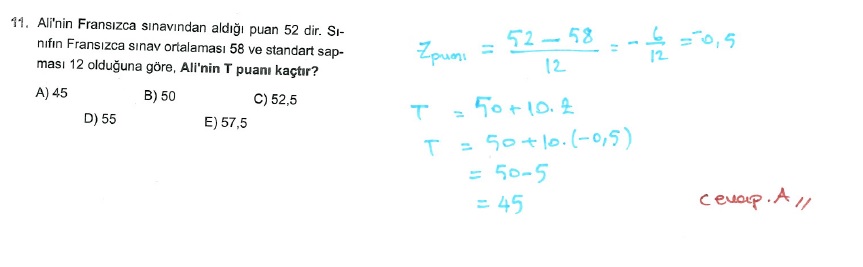 11. Ali'nin Fransızca sınavından aldığı puan 52 dir. Sı-
nıfın Fransızca sınav ortalaması 58 ve standart sap-
ması 12 olduğuna göre, Ali'nin T puanı kaçtır?
A) 45 B) 50 C) 52,5
D) 55 E) 57,5
Zpuanı = 52 - 58 / 12 = - 6/12 = -0,5
T = 50 + 10. Z
T = 50 + 10. (-0,5)
= 50-5
= 45
Cevap. A //